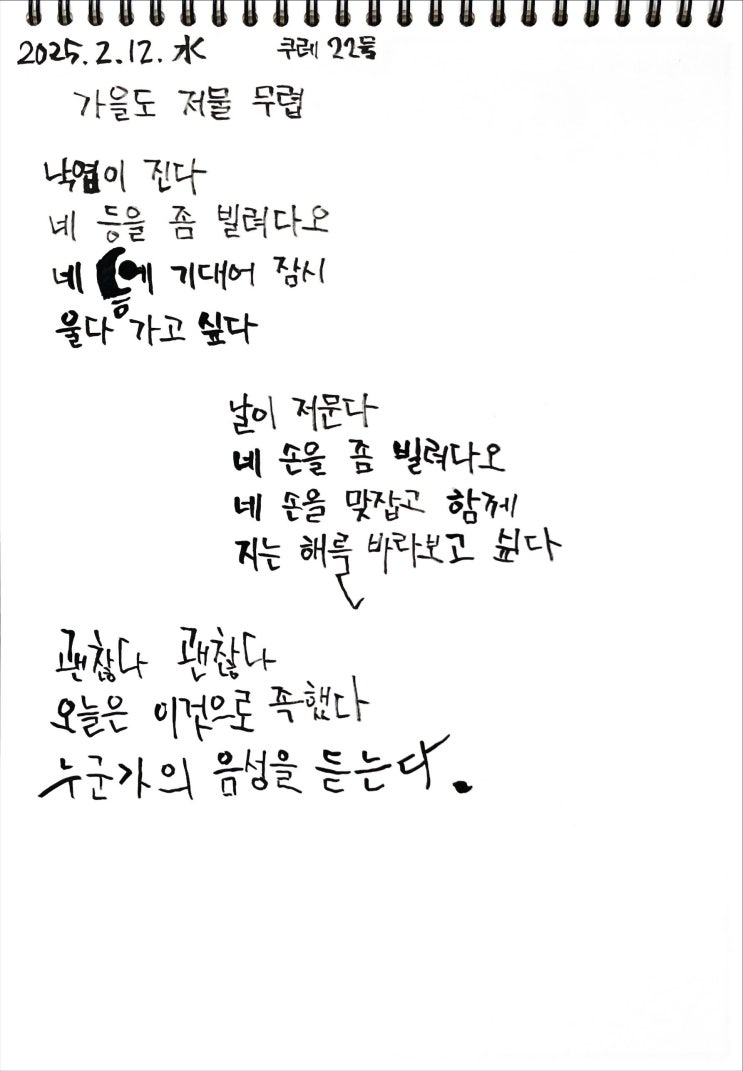 2025. 2. 12. 水 쿠레 22물
가을도 저물 무렵
낙엽이 진다
네 등을 좀 빌려다오
네 등에 기대어 잠시
울다 가고 싶다
날이 저문다
네 손을 좀 빌려다오
네 손을 맞잡고 함께
지는 해를 바라보고 싶다
괜찮다 괜찮다
오늘은 이것으로 족했다
누군가의 음성을 듣는다.